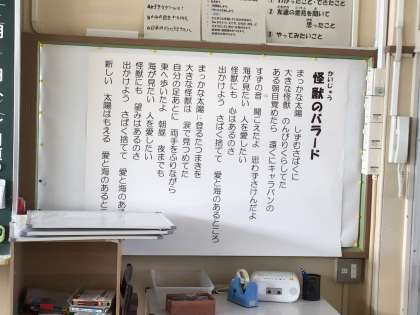 ①わかったこと・できたこと
②友達の意見を聞いて
思ったこと
③やってみたいこと
かいじゅう
怪獣のバラード
まっかな太陽 しずむさばくに
大きな怪獣 のんびりくらしてた
ある朝目覚めたら 遠くにキャラバンの
すずの音 聞こえたよ 思わずさけんだよ
海が見たい 人を愛したい
怪獣にも 心はあるのさ
出かけよう さばく捨てて 愛と海のあるところ
まっかな太陽 登るたつまきを
大きな怪獣は 涙で見つめてた
自分の足あとに 両手をふりながら
東へ歩いたよ 朝昼 夜までも
海が見たい 人を愛したい
怪獣にも 望みはあるのさ
出かけよう さばく捨てて 愛と海のある
新しい 太陽はもえる 愛と海のあると